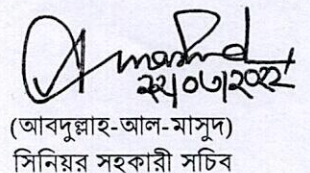 ২২/০৬/২০২২
(আবদুল্লাহ-আল-মাসুদ)
সিনিয়র সহকারী সচিব